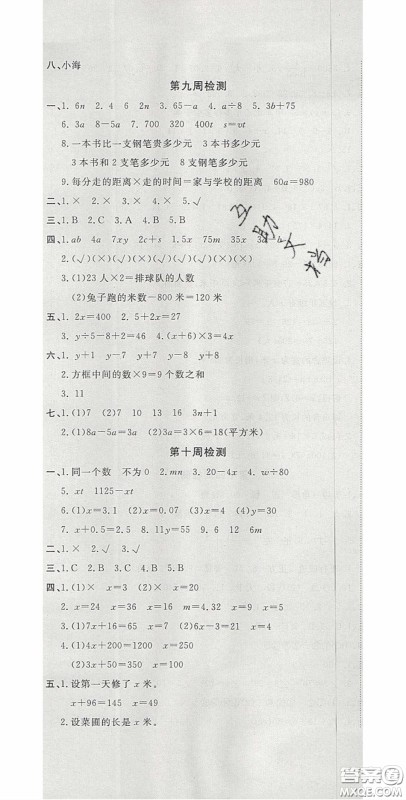 八、小海
第九周检测
一、1. 6n 2. 4 6 2n 3. 65－a 4. a÷8 5. 3b＋75
6. 3a 8－5a 7. 700 320 400 s＝vt
8. 一本书比一支钢笔贵多少元 3本书多少元
3本书和2支笔多少元 8支钢笔多少元
9. 每分走的距离×走的时间＝家与学校的距离 60a＝980
二、1. × 2. × 3. × 4. × 5. √
三、1. B 2. C 3. A 4. B 5. B
四、1. ab 4a 7xy 2c＋s 175m 35x 3a b
2. (√)(×)(√)(×)(×)(√)(√)(×)
3. (1)23人×2＝排球队的人数
(2)兔子跑的米数－800米＝120米
五、1. 2x＝400 2. 5＋2x＝27
3. y÷5－8＋2＝46 4. (x＋6)×3
六、1. y＋1 y－7 y＋7 y＋8
2. 方框中间的数×9＝9个数之和
3. 11
七、1. (1)7 (2)7 10 13 16 3n＋1
2. (1)8a－5a＝3a (2)a＝3×6＝18(平方米)
第十周检测
一、1. 同一个数 不为0 2. mn 3. 20－4x 4. w÷80
5. xt 1125－xt
6. (1)x＝3.1 (2)x＝0.5 (3)x＝4 (4)y＝30
7. x＋0.5＝2.5 8. 13 11 9. 6 12 6m
二、1. × 2. √ 3. √
三、1. C 2. B 3. A 4. B 5. B
四、1. (1)× x＝3 (2)× x＝6
2. x＝24 x＝36 x＝16 m＝4.32 x＝9 x＝6
3. (1)7x＋16＝65 x＝7 (2)6x－8＝82 x＝15
4. (1)4x＋200＝1200 x＝250
(2)3x＋450＝1500 x＝350
五、1. 设第一天修了x米。
x＋96＝145 x＝49
2. 设菜圃的长是x米。
互助文档
答案圈
MXQE.COM